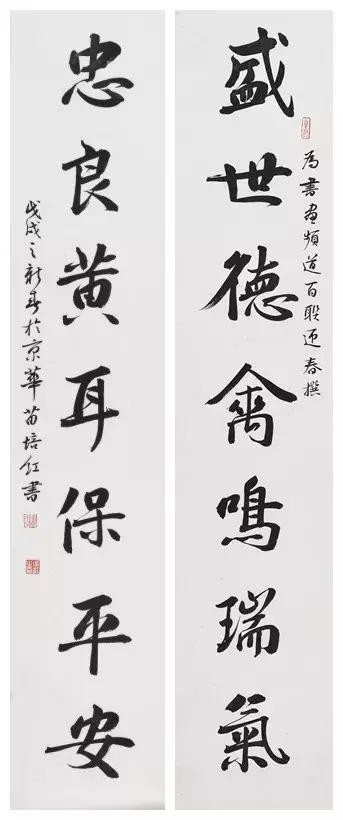 盛世德禽鳴瑞氣
为書畫頻道百联迎春撰
忠良黃耳保平安
戊戌之新春於京華苗培红書